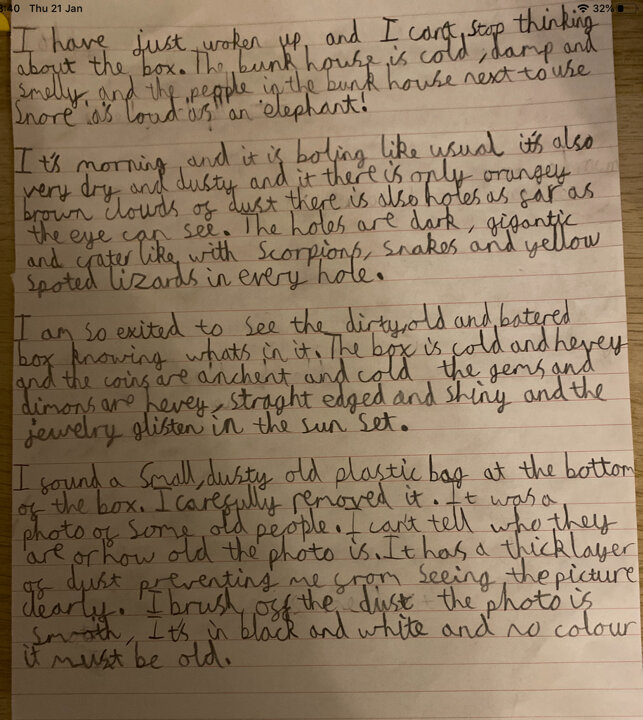 8:40 Thu 21 Jan 32%
I have just woken up and I can't stop thinking
about the box. The bunk house is cold, damp and
smelly, and the people in the bunk house next to use
Snore as loud as an elephant!
It's morning and it is boling like usual it's also
very dry and dusty and it there is only orangey
brown clowds of dust there is also holes as far as
the eye can see. The holes are dark, gigantic
and crater like with Scorpions, snakes and yellow
spoted lizards in every hole.
I am so exited to see the dirty, old and batered
box knowing whats in it. The box is cold and hevey
and the coins are anchent and cold the gems and
dimons are hevey, straght edged and shiny and the
jewelry glisten in the sun set.
I found a small, dusty old plastic bag at the bottom
of the box. I carefully removed it. It was a
photo of some old people. I can't tell who they
are or how old the photo is. It has a thick layer
of dust preventing me from seeing the picture
clearly. I brush off the dust the photo is
smooth, It's in black and white and no colour
it must be old.